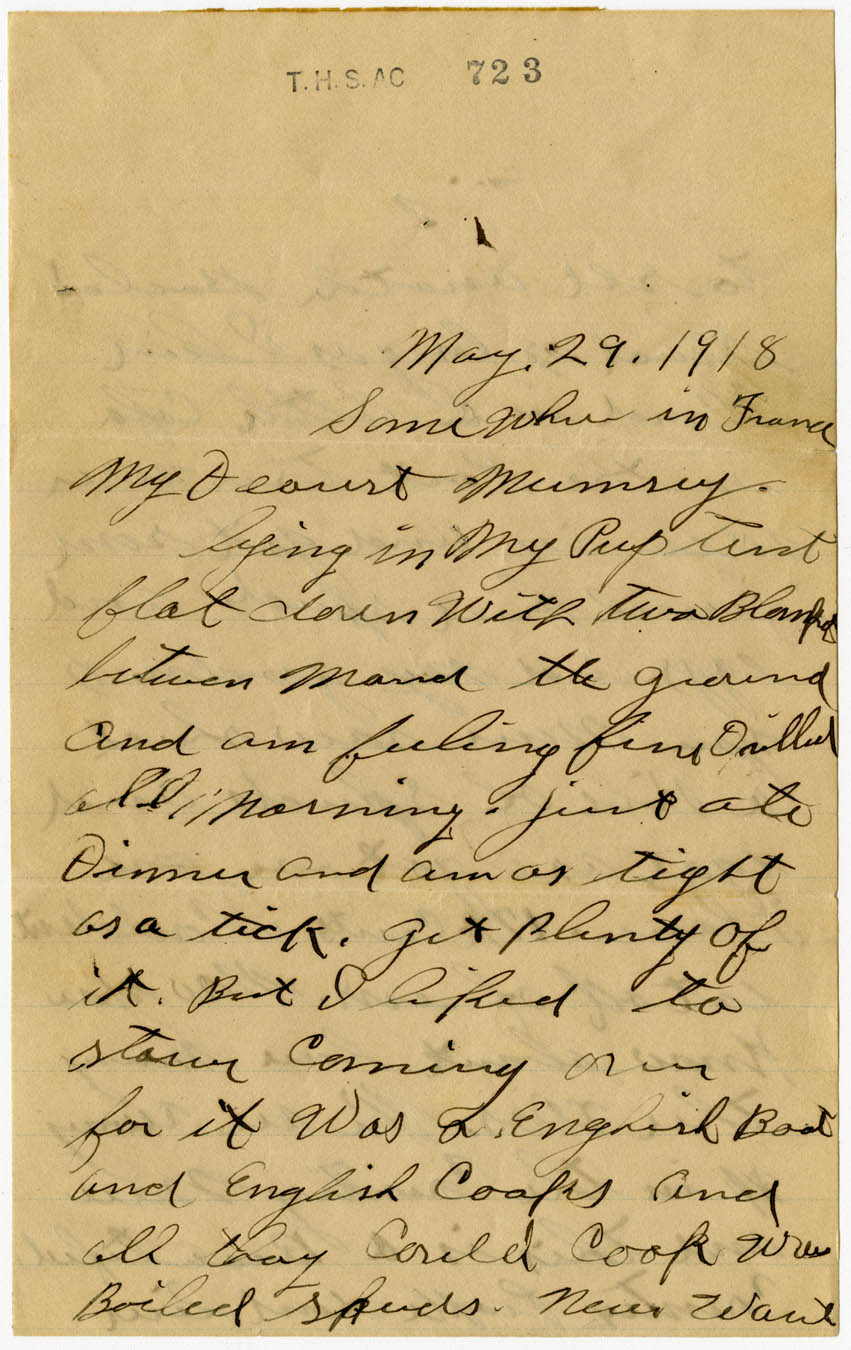 T.H.S. AC 723
May. 29. 1918
Some Where in France
My Dearest Mumsey.
lying in My Pup Tent
flat down With two Blankets
between Me and the ground
and am feeling fine Drilled
all Morning. just ate
Dinner and am as tight
as a tick. get Plenty of
it. But I liked to
starve Coming over
for it Was a English Boat
and English Cooks and
all they Could Cook Was
Boiled Spuds. Never Want